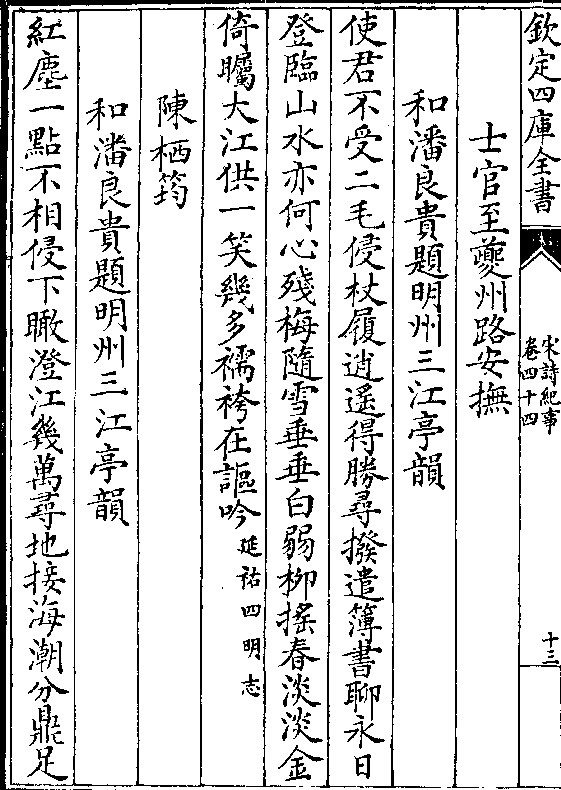 欽定四庫全書
宋詩紀事
卷四十四
十三
士官至夔州路安撫
和潘良貴題明州三江亭韻
使君不受二毛侵杖履逍遙得勝尋撥遣簿書聊永日
登臨山水亦何心殘梅隨雪垂垂白弱柳搖春淡淡金
倚矚大江供一笑幾多襦袴在謳吟延祐四明志
陳栖筠
和潘良貴題明州三江亭韻
紅塵一點不相侵下瞰澄江幾萬尋地接海潮分鼎足